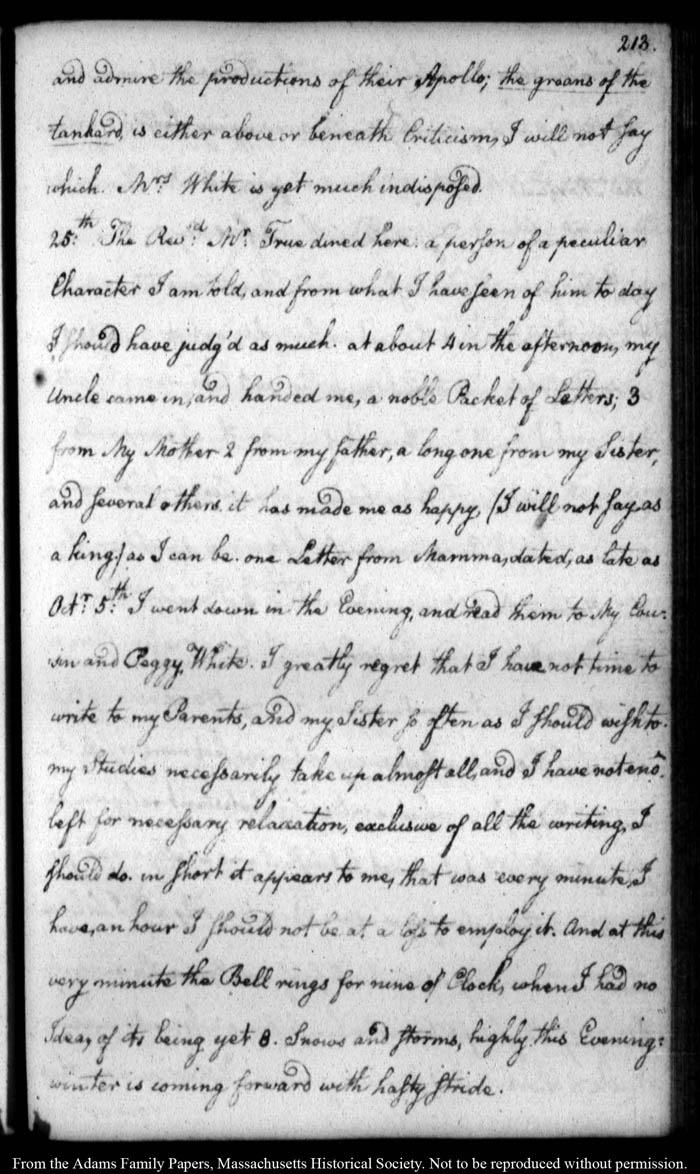 213.
and admire the productions of their Apollo; the groans of the
tankard, is either above or beneath Criticism, I will not say
which. Mrs. White is yet much indisposed.
25.th The Revd. Mr. True dined here: a person of a peculiar
Character I am told, and from what I have seen of him to day
I should have judg'd as much. at about 4 in the afternoon, my
Uncle came in, and handed me, a noble Packet of Letters; 3
from My Mother 2 from my father, a long one from my Sister,
and several others. it has made me as happy, (I will not say, as
a king) as I can be. one Letter from Mamma, dated, as late as
Octr. 5.th I went down in the Evening, and read them to My Cou-
sin and Peggy White. I greatly regret that I have not time to
write to my Parents, and my Sister so often as I should wish to.
my Studies necessarily take up almost all, and I have not eno'.
left for necessary relaxation, exclusive of all the writing, I
should do. in short it appears to me, that was every minute, I
have, an hour I should not be at a loss to employ it. And at this
very minute the Bell rings for nine o' Clock, when I had no
Idea, of its being yet 8. Snows and storms, highly this Evening:
winter is coming forward with hasty stride.
From the Adams Family Papers, Massachusetts Historical Society. Not to be reproduced without permission